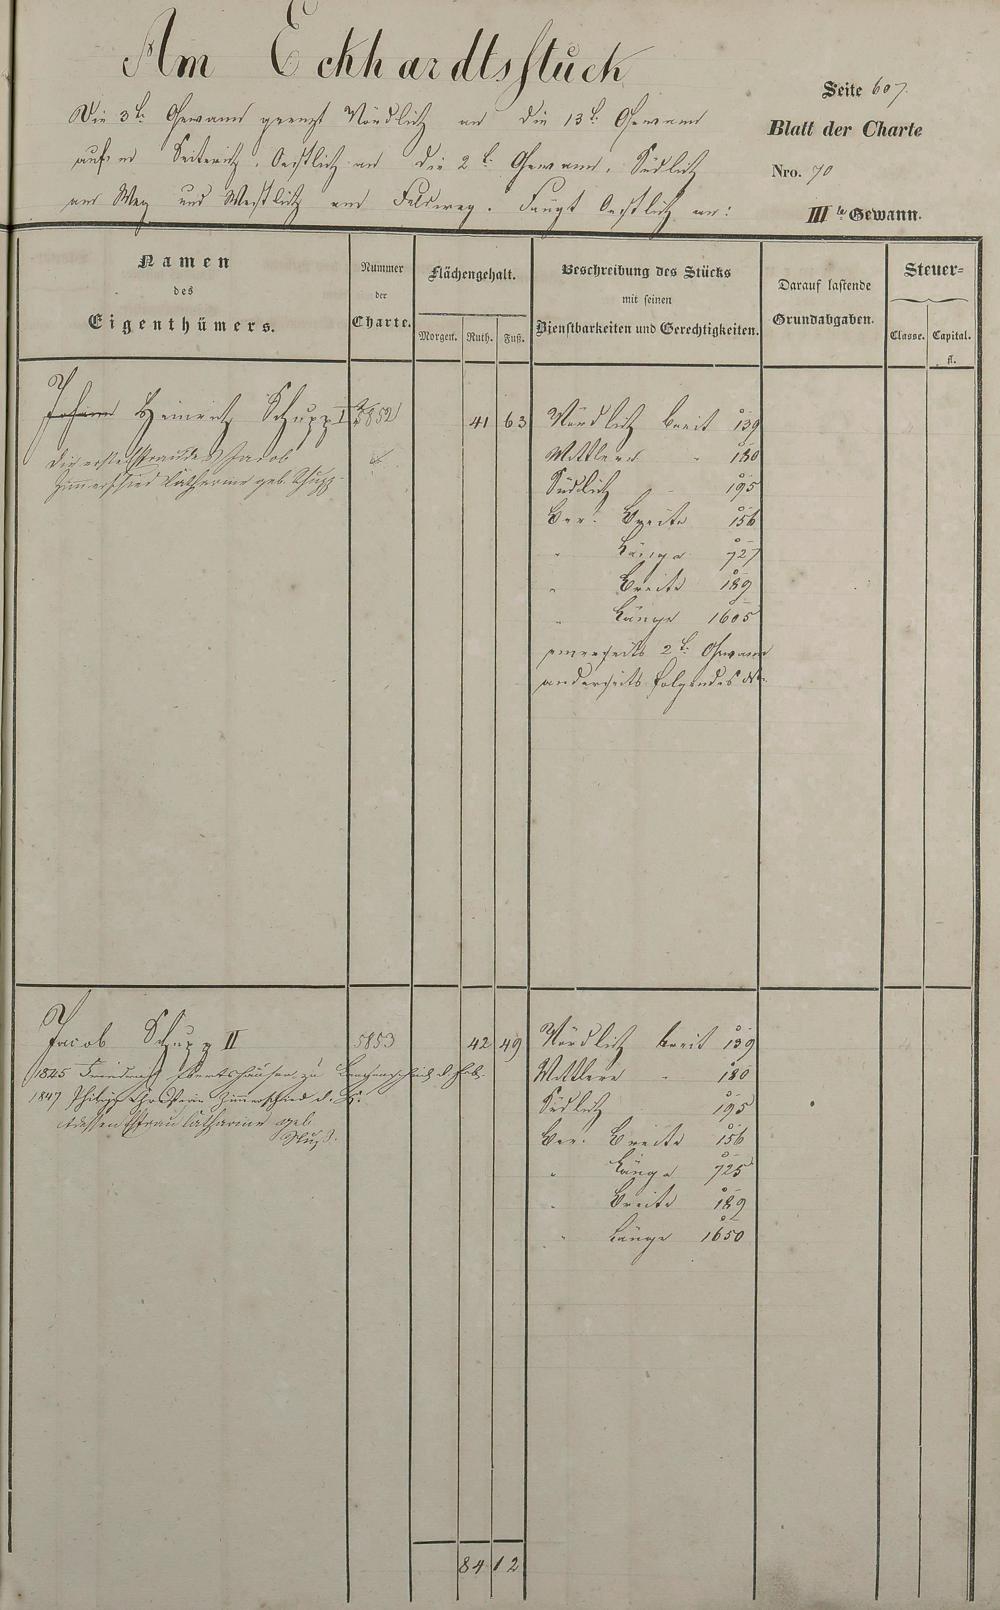 Am Eckhardtsstück
Seite 607.
Die 3te Gewann grenzt Nördlich an die 13te Gewann
Blatt der Charte
aufm Seiterich, Oestlich an die 2te Gewann, Südlich
Nro. 70
am Weg und Westlich am Feldweg. Fängt Oestlich an:
IIIte Gewann.
Namen
des
Eigenthümers.
Nummer
der
Charte.
Flächengehalt.
Morgen. Ruth. Fuß.
Beschreibung des Stücks
mit seinen
Dienstbarkeiten und Gerechtigkeiten.
Darauf lastende
Grundabgaben.
Steuer-
Classe. Capital.
fl.
Johann Heinrich Schupp I 5852 41 63 Nördlich breit 139
die Jacob Mittlere " 180
Zimmerschied Catharine geb. Schupp Südlich " 195
Ber. Breite 156
" Länge 727
" Breite 189
" Länge 1605
einerseits 2te Gewann
anderseits folgendes
Jacob Schupp II 5853 42 49 Nördlich breit 139
1825 zu Mittlere " 180
1847 Philipp Zimmerschied Südlich 195
dessen Ehefrau Catharine geb.
Ber. Breite 156
" Länge 725
" Breite 189
" Länge 1650
84 12